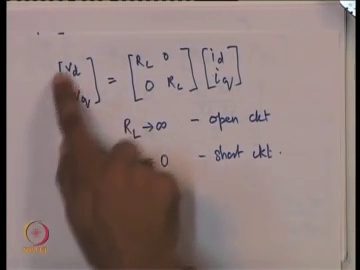 [v_d i_q] = [R_L 0 0 R_L] [i_d i_q]
R_L → ∞ - open ckt
= 0 - short ckt.